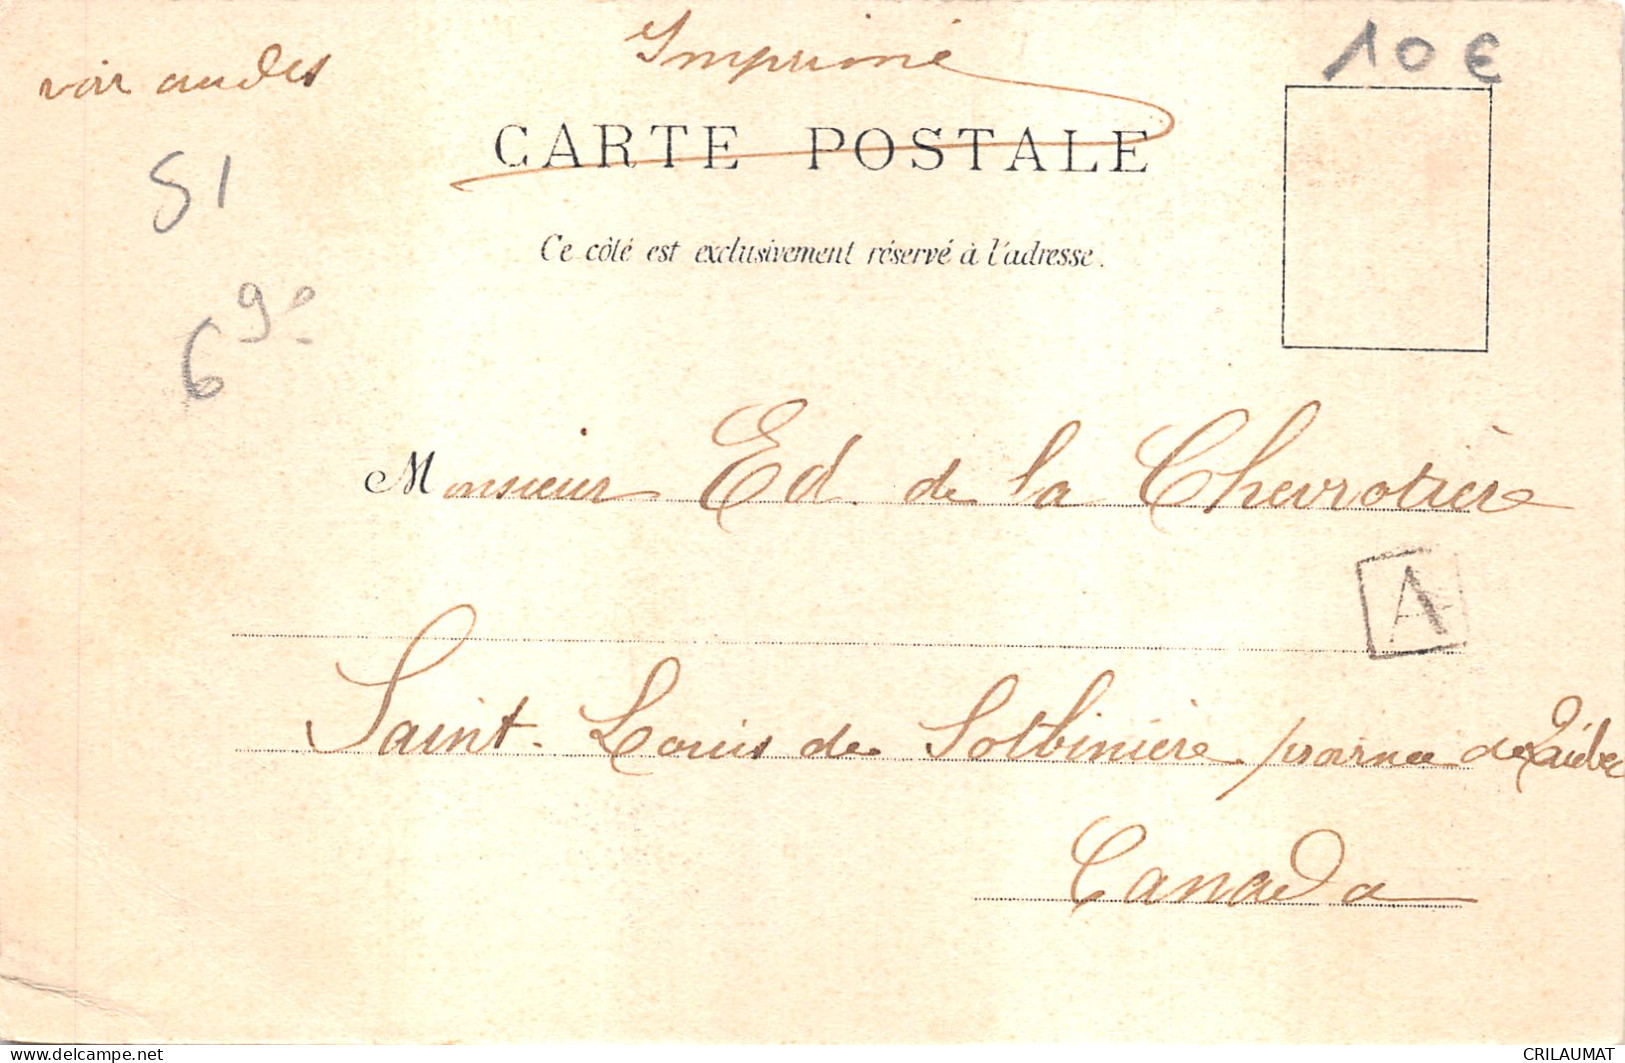 Imprimé
10 €
voir au dos
CARTE POSTALE
51
Ce côté est exclusivement réservé à l'adresse.
69e
Monsieur Ed. de la Chevrotière
A
Saint-Louis de Lotbinière province de Québec
Canada
www.delcampe.net
CRILAUMAT